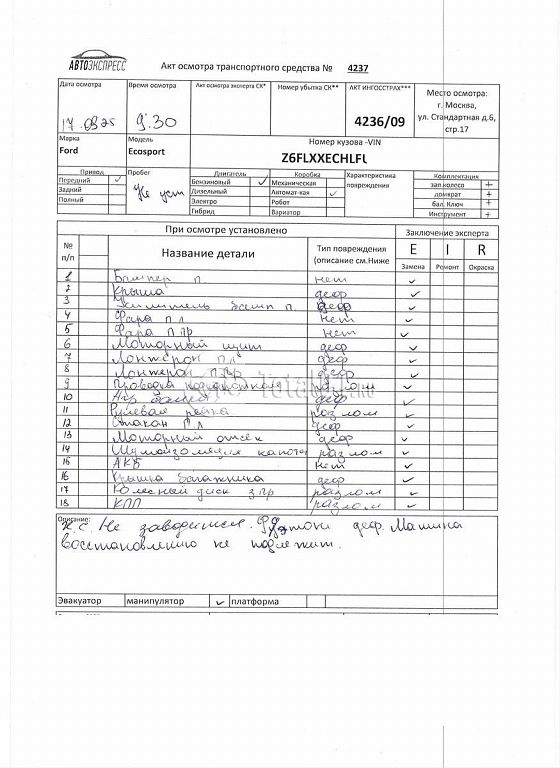 АВТОЭКСПРЕСС
Акт осмотра транспортного средства № 4237
Дата осмотра Время осмотра Акт осмотра эксперта СК* Номер убытка СК** АКТ ИНГОССТРАХ*** Место осмотра:
г. Москва,
17.0325 9:30 4236/09 ул. Стандартная д.6,
стр.17
Марка Модель Номер кузова -VIN
Ford Ecosport Z6FLXXECHLFL
Привод Пробег Двигатель Коробка Характеристика повреждения Комплектация
Передний ✓ Не уст Бензиновый ✓ Механическая зап.колесо +
Задний Дизельный Автомат-кая ✓ домкрат +
Полный Электро Робот бал. Ключ +
Гибрид Вариатор Инструмент +
При осмотре установлено Заключение эксперта
№ п/п Название детали Тип повреждения (описание см.Ниже E I R
Замена Ремонт Окраска
1 Бампер п. нет ✓
2 Крыша деф ✓
3 Усилитель бамп п. деф ✓
4 Фара п л нет ✓
5 Фара П пр нет ✓
6 Моторный щит деф ✓
7 Лонжерон П л деф ✓
8 Лонжерон П пр деф ✓
9 Проводка разлом ✓
10 деф ✓
11 Рулевая рейка разлом ✓
12 Стакан П л деф ✓
13 Моторный отсек деф ✓
14 Шумоизоляция капота разлом ✓
15 АКБ нет ✓
16 Крышка багажника деф ✓
17 Колесный диск з пр разлом ✓
18 КПП разлом ✓
Описание: Не заводится. деф. Машина
восстановлению не подлежит.
Эвакуатор манипулятор ✓ платформа